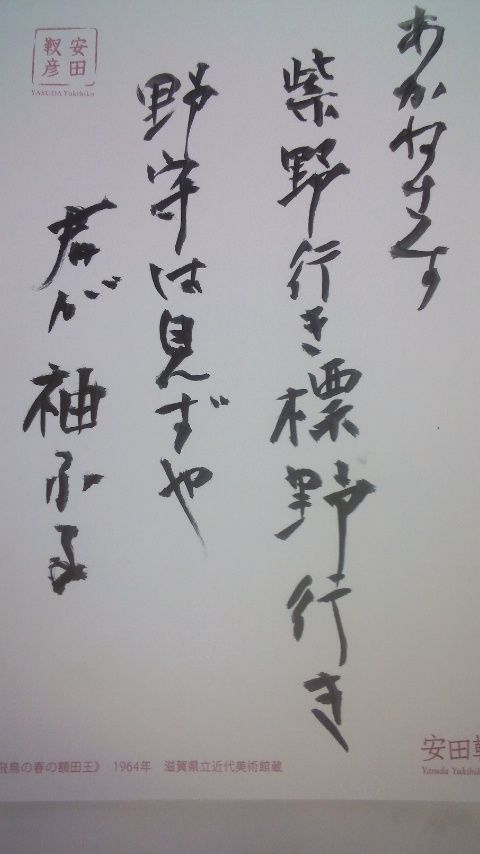 あかねさす
紫野行き標野行き
野守は見ずや
君が袖ふる
安田
靫彦
YASUDA Yukihiko
飛鳥の春の額田王》 1964年 滋賀県立近代美術館蔵
安田靫
Yasuda Yukihik